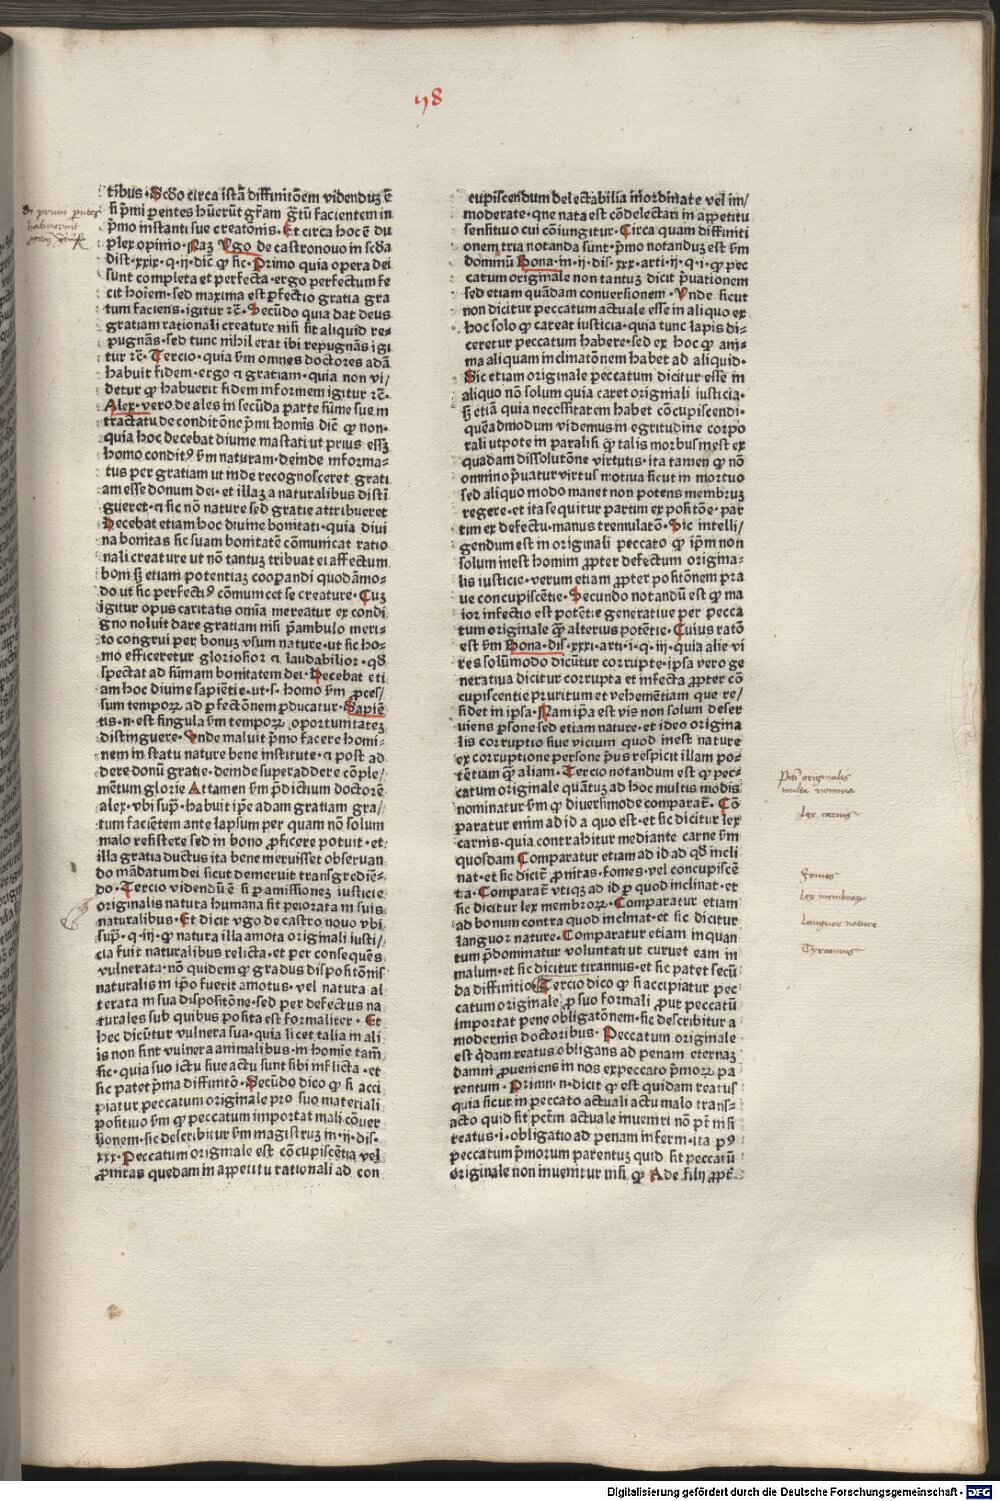 58
tibus·Scđo circa istā diffinitōem videnduȝ ē
si p̄mi pentes hūerūt gr̄am gr̄tū facientem in
p̄mo instanti sue creatōnis·Et circa hoc ē du
plex opinio·Naȝ Vgo de castronouo in scđa
dist·xxix·q·ij·dic̄ ꝙ sic·Primo quia opera dei
sunt completa et perfecta·ergo perfectum fe
cit hoīem·sed maxima est ꝑfectio gratia gra
tum faciens·igitur rē·Secūdo quia dat deus
gratiam rationali creature nisi sit aliquid re-
pugnās·sed tunc nihil erat ibi repugnās igi
tur rē·Tercio·quia ẜm omnes doctores adā
habuit fidem·ergo ⁊ gratiam·quia non vi/
detur ꝙ habuerit fidem informem igitur rē·
Alex·vero de ales in secūda parte sūme sue in
tractatu de conditōne p̄mi homīs dic̄ ꝙ non·
quia hoc decebat diuine maiestati ut prius esset
homo conditꝰ ẜm naturam·deinde informa-
tus per gratiam ut inde recognosceret grati
am esse donum dei·et illaȝ a naturalibus distī
gueret·⁊ sic nō nature sed gratie attribueret
Decebat etiam hoc diuine bonitati·quia diui
na bonitas sic suam bonitatē cōmunicat ratio
nali creature ut nō tantuȝ tribuat ei affectum
boni sȝ etiam potentiaȝ cooꝑandi quodāmo-
do ut sic perfectiꝰ cōmunicet se creature·Cuȝ
igitur opus caritatis omīa mereatur ex condi
gno noluit dare gratiam nisi p̄ambulo meri-
to congrui per bonuȝ vsum nature·ut sic ho-
mo efficeretur gloriosior ⁊ laudabilior·qđ
spectat ad sūmam bonitatem dei·Decebat eti
am hoc diuine sapiētie·ut·s·homo ẜm ꝓces/
sum tempoꝝ ad ꝑfectōnem ꝑducatur·Sapiē
tis·n·est singula ẜm tempoꝝ oportunitateȝ
distinguere·Vnde maluit p̄mo facere homi-
nem in statu nature bene institute·⁊ post ad
dere donū gratie·deinde superaddere cōple/
mētum glorie Attamen ẜm p̄dictum doctorē
alex·vbi sup̄·habuit ip̄e adam gratiam gra/
tum faciētem ante lapsum per quam nō solum
malo resistere sed in bono ꝓficere potuit·et
illa gratia ductus ita bene meruisset obseruan
do mādatum dei sicut demeruit transgrediē-
do·Tercio videndū ē si ꝑ amissioneȝ iusticie
originalis natura humana sit peiorata in suis
naturalibus·Et dicit vgo de castro nouo vbi
sup̄·q·iij·ꝙ natura illa amota originali iusti/
cia fuit naturalibus relicta·et per consequēs
vulnerata·nō quidem ꝙ gradus dispositōnis
naturalis in ip̄o fuerit amotus·vel natura al
terata in sua dispositōne·sed per defectus na
turales sub quibus posita est formaliter·Et
hec dicūtur vulnera sua·quia licet talia in ali
is non sint vulnera animalibus·in homīe tam̄
sic·quia suo ictu siue actu sunt sibi inflicta·et
sic patet p̄ma diffinitō·Secūdo dico ꝙ si acci
piatur peccatum originale pro suo materiali
positiuo ẜm ꝙ peccatum importat mali cōuer
sionem·sic describitur ẜm magistruȝ in·ij·dis·
xxx·Peccatum originale est cōcupiscētia vel
ꝓnitas quedam in appetitu rationali ad con
cupiscendum delectabilia inordinate vel im/
moderate·que nata est cōdelectari in appetitu
sensitiuo cui cōiungitur·Circa quam diffiniti
onem tria notanda sunt·p̄mo notanduȝ est ẜm
dominū Bona·in·ij·dis·xxx·arti·ij·q·i·ꝙ pec
catum originale non tantuȝ dicit p̄uationem
sed etiam quādam conuersionem·Vnde sicut
non dicitur peccatum actuale esse in aliquo ex
hoc solo ꝙ careat iusticia·quia tunc lapis di-
ceretur peccatum habere·sed ex hoc ꝙ ani-
ma aliquam inclinatōnem habet ad aliquid·
Sic etiam originale peccatum dicitur esse in
aliquo nō solum quia caret originali iusticia·
sȝ etiā quia necessitatem habet cōcupiscendi·
queadmodum videmus in egritudine corpo
rali utpote in paralisi ꝙ talis morbus inest ex
quadam dissolutōne virtutis·ita tamen ꝙ nō
omnino p̄uatur virtus motiua sicut in mortuo
sed aliquo modo manet non potens membruȝ
regere·et ita sequitur partim ex positōe·par
tim ex defectu·manus tremulatō·Sic intelli/
gendum est in originali peccato ꝙ ip̄m non
solum inest homini ꝓpter defectum origina-
lis iusticie·verum etiam ꝓpter positōnem pra
ue concupiscētie·Secundo notandū est ꝙ ma
ior infectio est potētie generatiue per pecca
tum originale ꝙ̄ alterius potētie·Cuius ratō
est ẜm Bona·dis·xxxi·arti·i·q·iij·quia alie vi
res solūmodo dicūtur corrupte·ipsa vero ge
neratiua dicitur corrupta et infecta ꝓpter cō
cupiscentie pruritum et vehemētiam que re/
sidet in ipsa·Nam ip̄a est vis non solum deser
uiens ꝑsone sed etiam nature·et ideo origina
lis corruptio siue vicium quod inest nature
ex corruptione persone p̄us respicit illam po-
tētiam ꝙ̄ aliam·Tercio notandum est ꝙ pec-
catum originale quātuȝ ad hoc multis modis
nominatur ẜm ꝙ diuersimode comparat̄·Cō
paratur enim ad id a quo est·et sic dicitur lex
carnis·quia contrahitur mediante carne ẜm
quosdam Comparatur etiam ad id ad qđ incli
nat·et sic dicit̄ ꝓnitas·fomes·vel concupiscē
tia·Comparat̄ vtiqȝ ad id ꝑ quod inclinat·et
sic dicitur lex membroꝝ·Comparatur etiam
ad bonum contra quod inclinat·et sic dicitur
languor nature·Comparatur etiam in quan
tum p̄dominatur voluntati ut curuet eam in
malum·et sic dicitur tirannus·et sic patet secū
da diffinitio Tercio dico ꝙ si accipiatur pec
catum originale ꝓ suo formali ꝓut peccatū
importat pene obligatōnem·sic describitur a
modernis doctoribus·Peccatum originale
est q̄dam reatus obligans ad penam eternaȝ
damni ꝓueniens in nos ex peccato p̄moꝝ pa
rentum·Primū·n·dicit ꝙ est quidam reatus
quia sicut in peccato actuali actu malo trans-
acto quid sit pctm̄ actuale inueniri nō pt̄ nisi
reatus·i·obligatio ad penam inferni·ita pꝰ
peccatum p̄morum parentuȝ quid sit peccatū
originale non inuenitur nisi ꝙ Ade filij ꝓpt̄
Si primi pentes
habuerunt
Pctī originalis
multa nomina
lex carnis
Fomes
lex membroꝝ
languor nature
Tyrannus
Digitalisierung gefördert durch die Deutsche Forschungsgemeinschaft - DFG